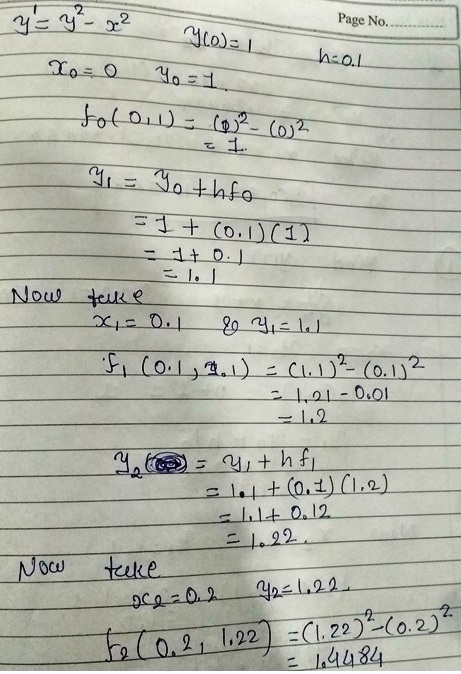 Page No.
y' = y² - x²
y(0) = 1
h=0.1
x₀ = 0 y₀ = 1.
f₀(0,1) = (1)² - (0)²
= 1.
y₁ = y₀ + hf₀
= 1 + (0.1)(1)
= 1 + 0.1
= 1.1
Now take
x₁ = 0.1 & y₁ = 1.1
f₁ (0.1, 1.1) = (1.1)² - (0.1)²
= 1.21 - 0.01
= 1.2
y₂ = y₁ + hf₁
= 1.1 + (0.1)(1.2)
= 1.1 + 0.12
= 1.22.
Now take
x₂ = 0.2 y₂ = 1.22.
f₂(0.2, 1.22) = (1.22)² - (0.2)²
= 1.4484